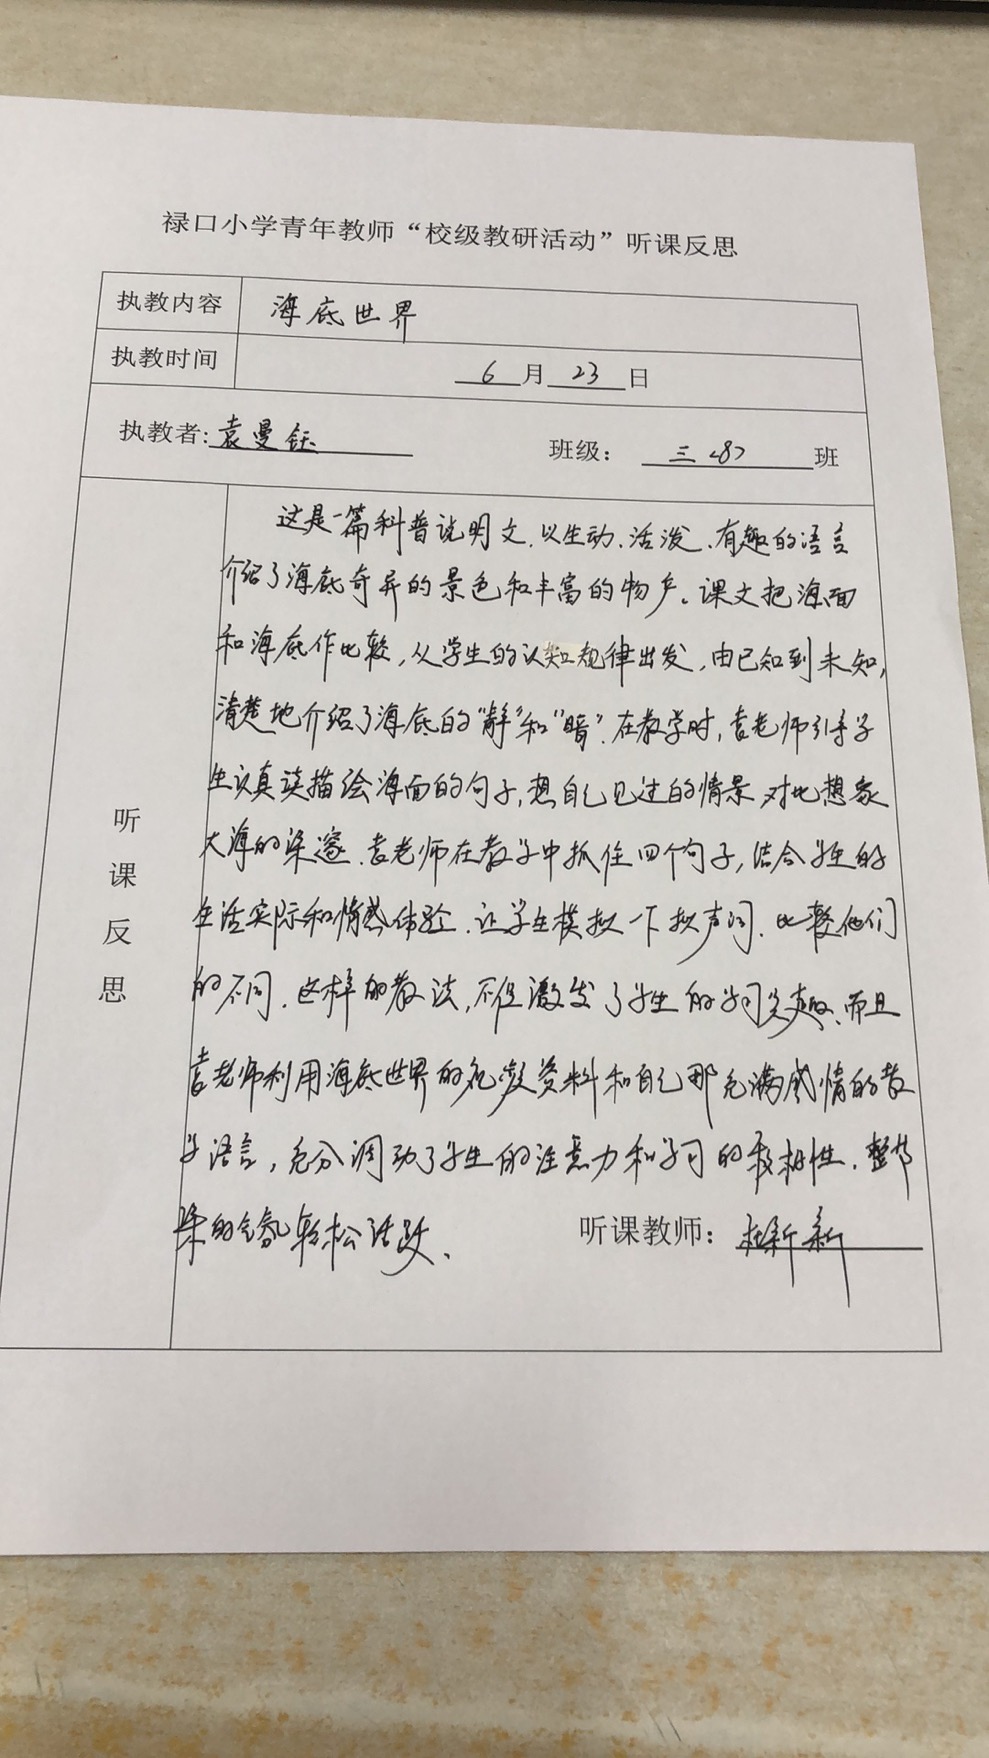 禄口小学青年教师“校级教研活动”听课反思
执教内容 海底世界
执教时间 6月23日
执教者:袁曼钰 班级： 三<8>班
听课反思
这是一篇科普说明文.以生动、活泼、有趣的语言
介绍了海底奇异的景色和丰富的物产。课文把海面
和海底作比较,从学生的认知规律出发,由已知到未知,
清楚地介绍了海底的“静”和“暗”.在教学时,袁老师引导学
生认真读描绘海面的句子,想自己见过的情景,对比想象
大海的深邃.袁老师在教学中抓住四个句子,结合学生的
生活实际和情感体验.让学生模拟一下拟声词.比较他们
的不同.这样的教法,不但激发了学生的学习兴趣、而且
袁老师利用海底世界的视频资料和自己那充满感情的教
学语言,充分调动了学生的注意力和学习的积极性.整节
课的气氛轻松活跃、
听课教师： 新新